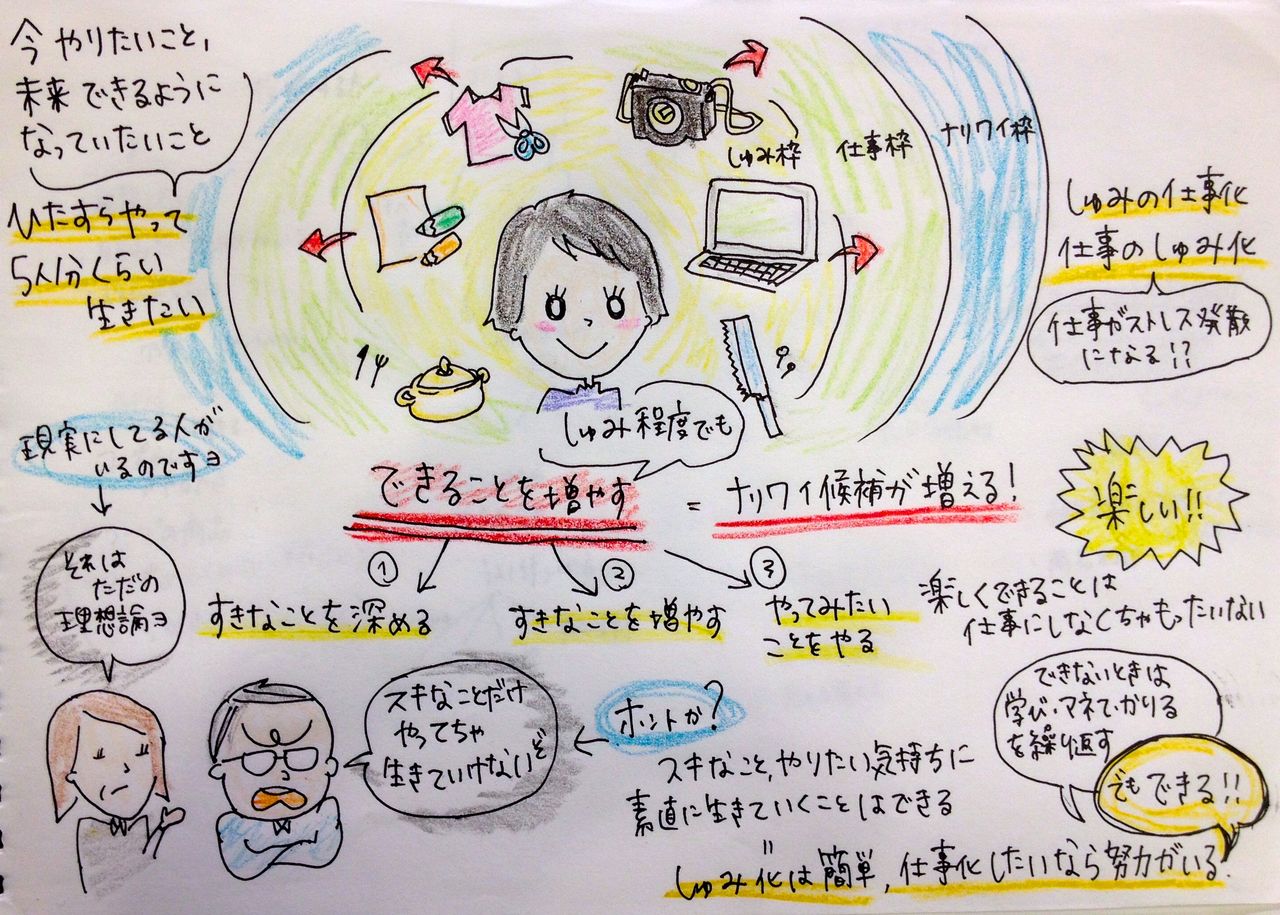 今やりたいこと、
未来できるように
なっていたいこと
ひたすらやって
5人分くらい
生きたい
しゅみ枠
仕事枠
ナリワイ枠
しゅみの仕事化
仕事のしゅみ化
仕事がストレス発散
になる!?
しゅみ程度でも
できることを増やす
=
ナリワイ候補が増える!
楽しい!!
① すきなことを深める
② すきなことを増やす
③ やってみたい
ことをやる
楽しくできることは
仕事にしなくちゃもったいない
現実にしてる人が
いるのですョ
それは
ただの
理想論ョ
スキなことだけ
やってちゃ
生きていけないぞ
ホントか?
スキなこと、やりたい気持ちに
素直に生きていくことはできる
できないときは
学び・マネて・かりる
を繰り返す
でもできる!!
しゅみ化は簡単、仕事化したいなら努力がいる.